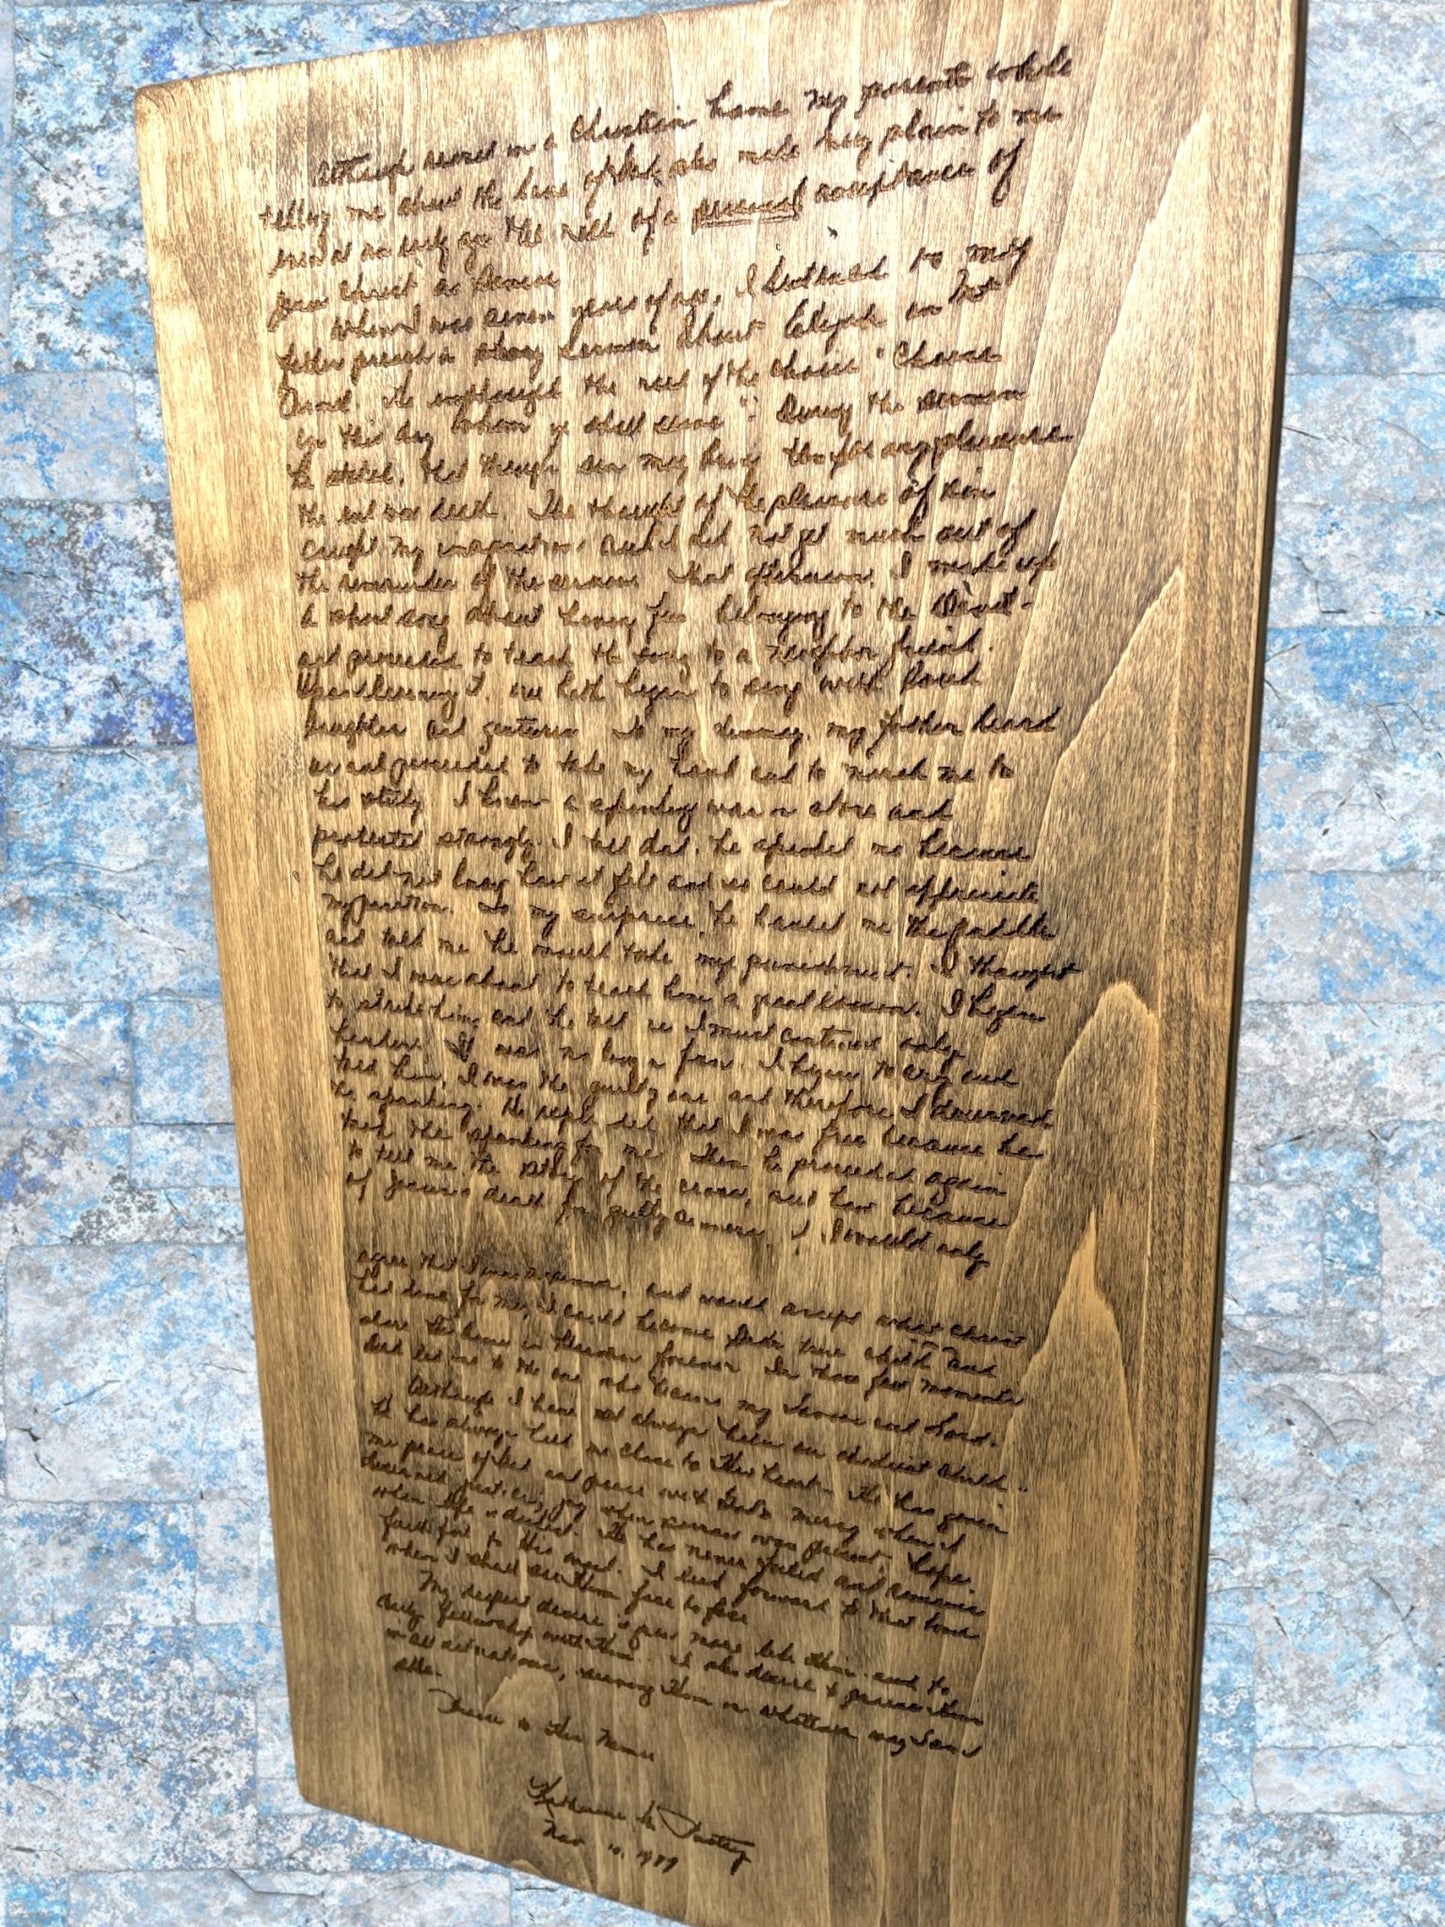 Although reared in a Christian home my parents while
telling me about the love of God, also made very plain to me
even at an early age the need of a personal acceptance of
Jesus Christ as Saviour
When I was seven years of age, I listened to my
father preach a strong sermon about Elijah in
Israel. He emphasized the need of the choice "Choose
ye this day whom ye shall serve". During the sermon
he stated, that though sin may bring pleasure
the end was death. The thought of the pleasure of sin
caught my imagination and I did not get much out of
the remainder of the sermon. That afternoon, I made up
a short song about belonging to the Devil -
and proceeded to teach the song to a neighbor friend.
Upon learning it, we both began to sing with loud
laughter and gestures. To my dismay, my father heard
us and proceeded to take my hand and to march me to
his study. I knew a spanking was in store and
protested strongly. I told dad, he spanked me because
he did not know how it felt and so could not appreciate
my position. To my surprise, he handed me the paddle
and told me he would take my punishment. I thought
that I was about to teach him a good lesson. I began
to strike him, and he told me I must continue only
harder. It was no longer fun. I began to cry and
told him, I was the guilty one and therefore I deserved
the spanking. He replied that I was free because he
took the spanking for me. Then he proceeded again
to tell me the story of the cross, and how because
of Jesus's death for guilty sinners, if I would only
agree that I was a sinner, and would accept what Christ
had done for me, I could become God's true child and
share the home in Heaven forever. In those few moments
Dad led me to the one who became my Saviour and Lord.
Although I have not always been an obedient child
He has always held me close to His heart. He has given
me peace and God's mercy when I
joy when sorrow was present, hope
when life is darkest. He has never failed and remains
faithful to His word. I look forward to that time
when I shall see Him face to face
My deepest desire is grow more like Him and to
daily fellowship with Him. I also desire to praise Him
in all situations, serving Him in whatever way I am
able.
Praise to His Name
Katherine
Nov 10, 1989